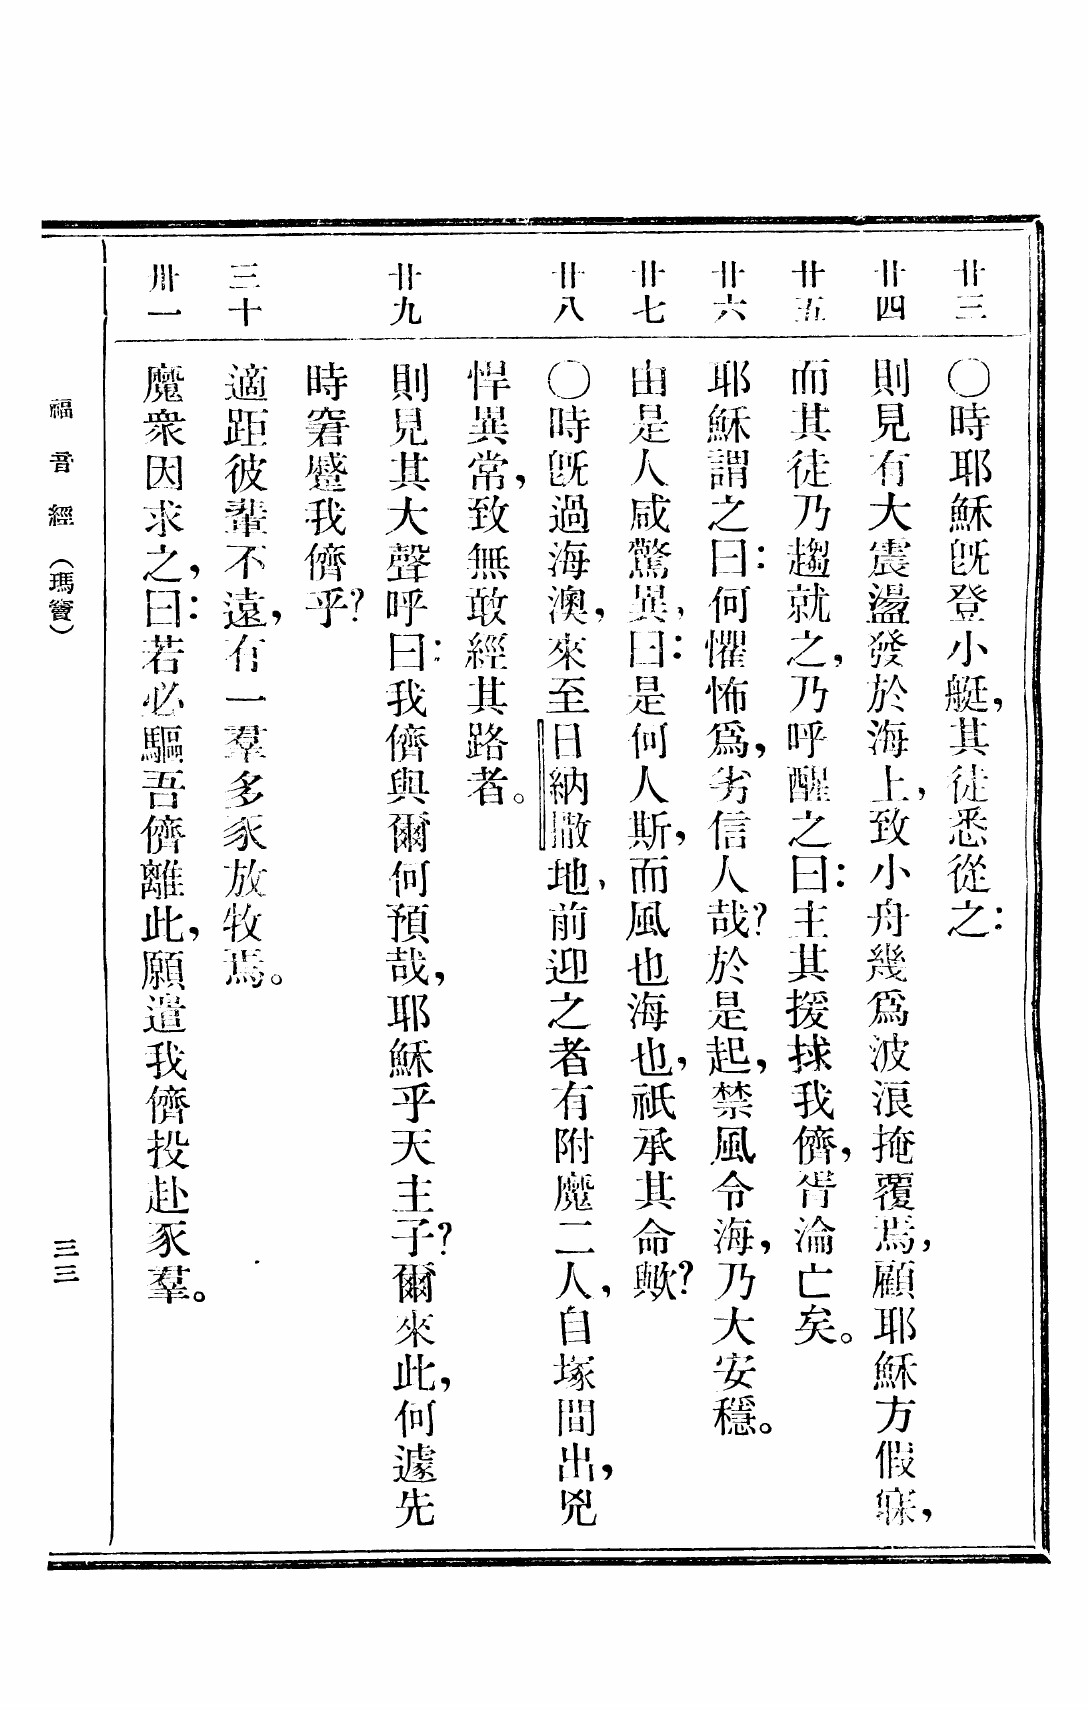 廿三 ○時耶穌旣登小艇，其徒悉從之：
廿四 則見有大震盪發於海上，致小舟幾爲波浪掩覆焉，顧耶穌方假寐，
廿五 而其徒乃趨就之，乃呼醒之曰：主其援捄我儕，胥淪亡矣。
廿六 耶穌謂之曰：何懼怖爲，劣信人哉？於是起，禁風令海，乃大安穩。
廿七 由是人咸驚異，曰：是何人斯，而風也海也，祇承其命歟？
廿八 ○時旣過海澳，來至日納撒地，前迎之者有附魔二人，自塚間出，兇
悍異常，致無敢經其路者。
廿九 則見其大聲呼曰：我儕與爾何預哉，耶穌乎天主子？爾來此，何遽先
時窘蹙我儕乎？
三十 適距彼輩不遠，有一羣多豕放牧焉。
卅一 魔衆因求之，曰：若必驅吾儕離此，願遣我儕投赴豕羣。
福音經（瑪竇） 三三